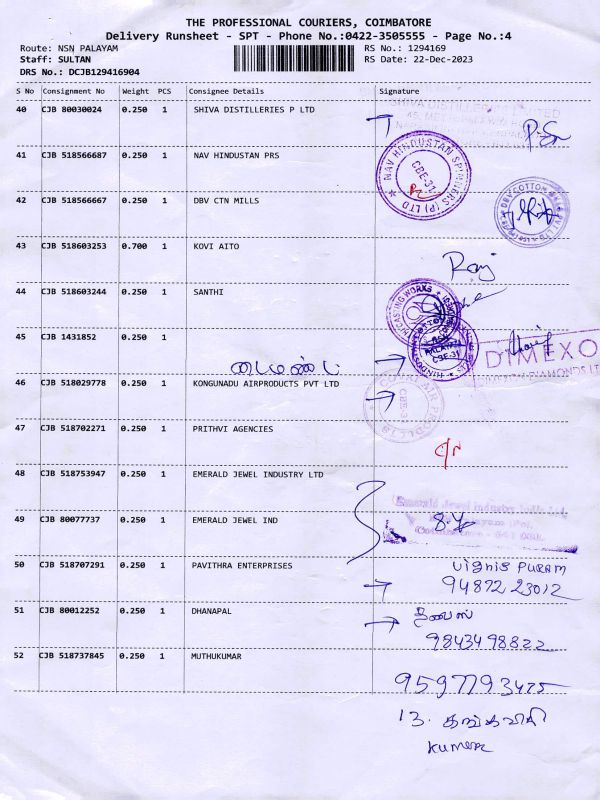 THE PROFESSIONAL COURIERS, COIMBATORE
Delivery Runsheet - SPT - Phone No.:0422-3505555 - Page No.:4
Route: NSN PALAYAM
RS No.: 1294169
Staff: SULTAN
RS Date: 22-Dec-2023
DRS No.: DCJB129416904
S No Consignment No Weight PCS Consignee Details Signature
40 CJB 80030024 0.250 1 SHIVA DISTILLERIES P LTD
41 CJB 518566687 0.250 1 NAV HINDUSTAN PRS
NAV HINDUSTAN SPINNERS (P) LTD
CBE-31
42 CJB 518566667 0.250 1 DBV CTN MILLS
43 CJB 518603253 0.700 1 KOVI AITO
Raj
44 CJB 518603244 0.250 1 SANTHI
45 CJB 1431852 0.250 1
DIMEXO
46 CJB 518029778 0.250 1 KONGUNADU AIRPRODUCTS PVT LTD
47 CJB 518702271 0.250 1 PRITHVI AGENCIES
48 CJB 518753947 0.250 1 EMERALD JEWEL INDUSTRY LTD
Emerald Jewel Industry India Ltd.
49 CJB 80077737 0.250 1 EMERALD JEWEL IND
50 CJB 518707291 0.250 1 PAVITHRA ENTERPRISES
PURAM
94872 23012
51 CJB 80012252 0.250 1 DHANAPAL
9843498822
52 CJB 518737845 0.250 1 MUTHUKUMAR
9597793475
13.